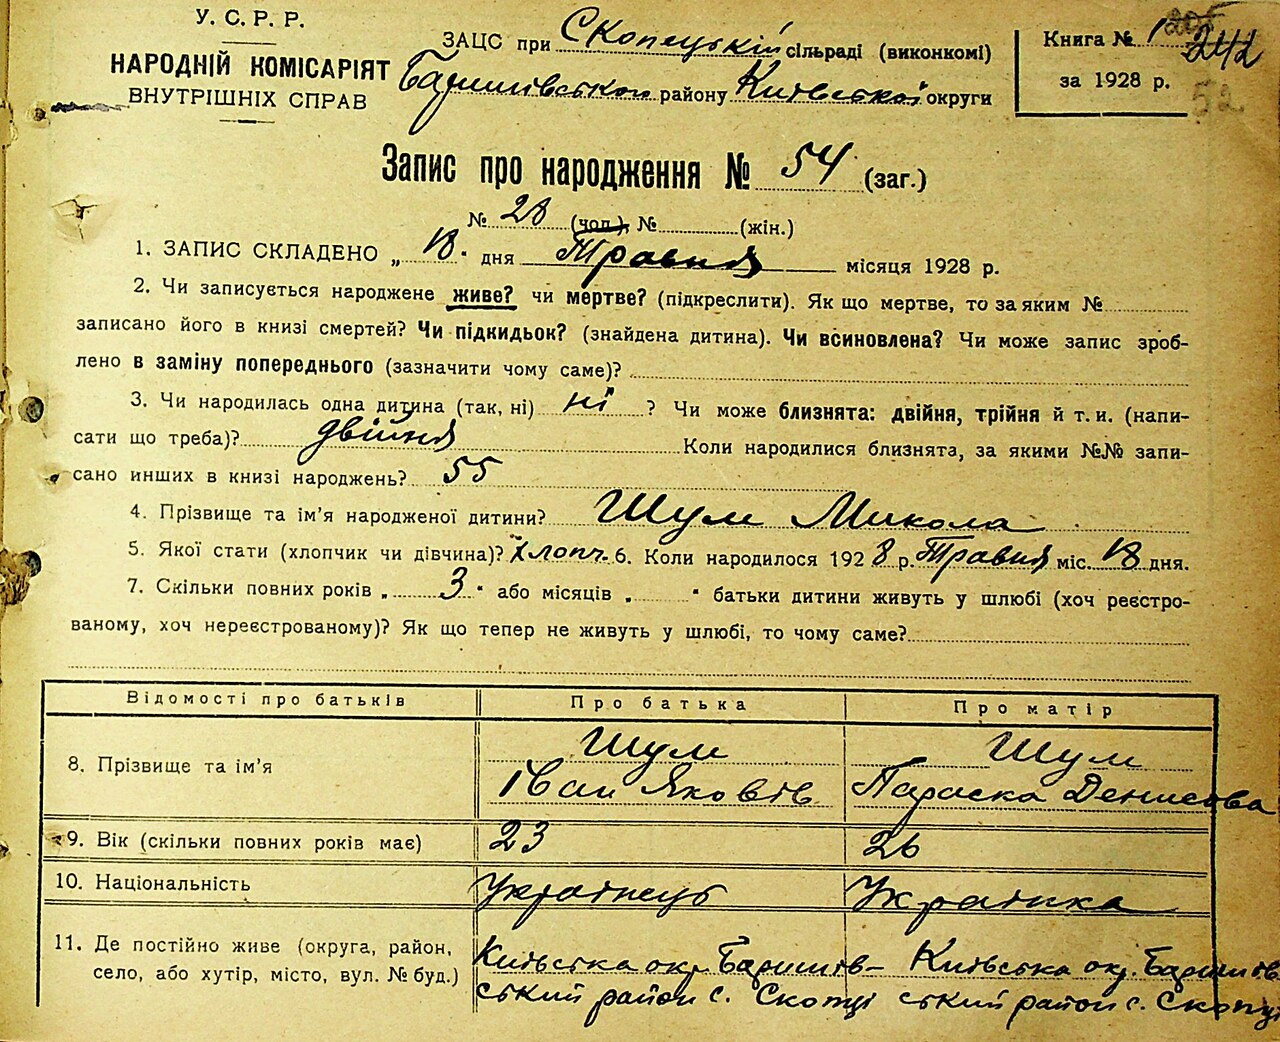 У. С. Р. Р.
НАРОДНІЙ КОМІСАРІЯТ
ВНУТРІШНІХ СПРАВ
ЗАЦС при Скопецькій сільраді (виконкомі)
Баришівського району Київської округи
Книга № 1 242
за 1928 р.
52
Запис про народження № 54 (заг.)
№ 28 (чол.), № (жін.)
1. ЗАПИС СКЛАДЕНО „ 18 " дня Травня місяця 1928 р.
2. Чи записується народжене живе? чи мертве? (підкреслити). Як що мертве, то за яким №
записано його в книзі смертей? Чи підкидьок? (знайдена дитина). Чи всиновлена? Чи може запис зроб-
лено в заміну попереднього (зазначити чому саме)?
3. Чи народилась одна дитина (так, ні) ні ? Чи може близнята: двійня, трійня й т. и. (напи-
сати що треба)? двійня Коли народилися близнята, за якими №№ запи-
сано инших в книзі народжень? 55
4. Прізвище та ім'я народженої дитини? Шум Микола
5. Якої стати (хлопчик чи дівчина)? хлопч. 6. Коли народилося 1928 р. Травня міс. 18 дня.
7. Скільки повних років „ 3 " або місяців „ " батьки дитини живуть у шлюбі (хоч реєстро-
ваному, хоч нереєстрованому)? Як що тепер не живуть у шлюбі, то чому саме?
Відомості про батьків Про батька Про матір
8. Прізвище та ім'я Шум Іван Яковів Шум Параска Денисова
9. Вік (скільки повних років має) 23 26
10. Національність Українець Українка
11. Де постійно живе (округа, район, Київська окр. Баришів- Київська окр. Баришів
село, або хутір, місто, вул. № буд.) ський район с. Скопці ський район с. Скопці